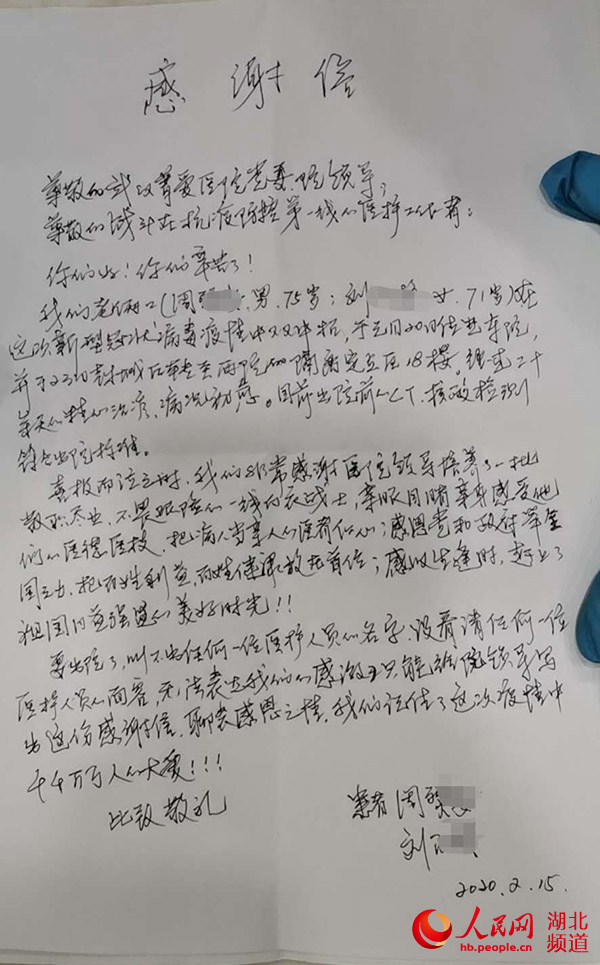 感谢信
尊敬的武汉普爱医院党委、院领导;
尊敬的战斗在抗疫防控第一线的医护工作者:
你们好!你们辛苦了!
我们老俩口(周 男、75岁;刘 女、71岁)在
这次新型冠状病毒疫情中双双中招,于元月20日住进本院,
并于23日封城后转至西院的隔离定点区18楼。经近二十
余天的精心治疗,病况初愈。目前出院前的CT、核酸检测
符合出院标准。
喜极而泣之时,我们非常感谢医院领导培养了一批
敬职尽业,不畏艰险的一线白衣战士,亲眼目睹亲身感受他
们的医德医技,把病人当亲人的医者仁心;感恩党和政府举全
国之力,把百姓利益、百姓健康放在首位;感叹生逢时,赶上了
祖国日益强盛的美好时光!!
要出院了,叫不出任何一位医护人员的名字,没看清任何一位
医护人员的面容,无法表达我们的感激,只能给院领导写
出这份感谢信,聊表感恩之情,我们记住了这次疫情中
千千万万人的大爱!!!
此致敬礼
患者周
刘
2020.2.15.
人民网 湖北
hb.people.cn 频道